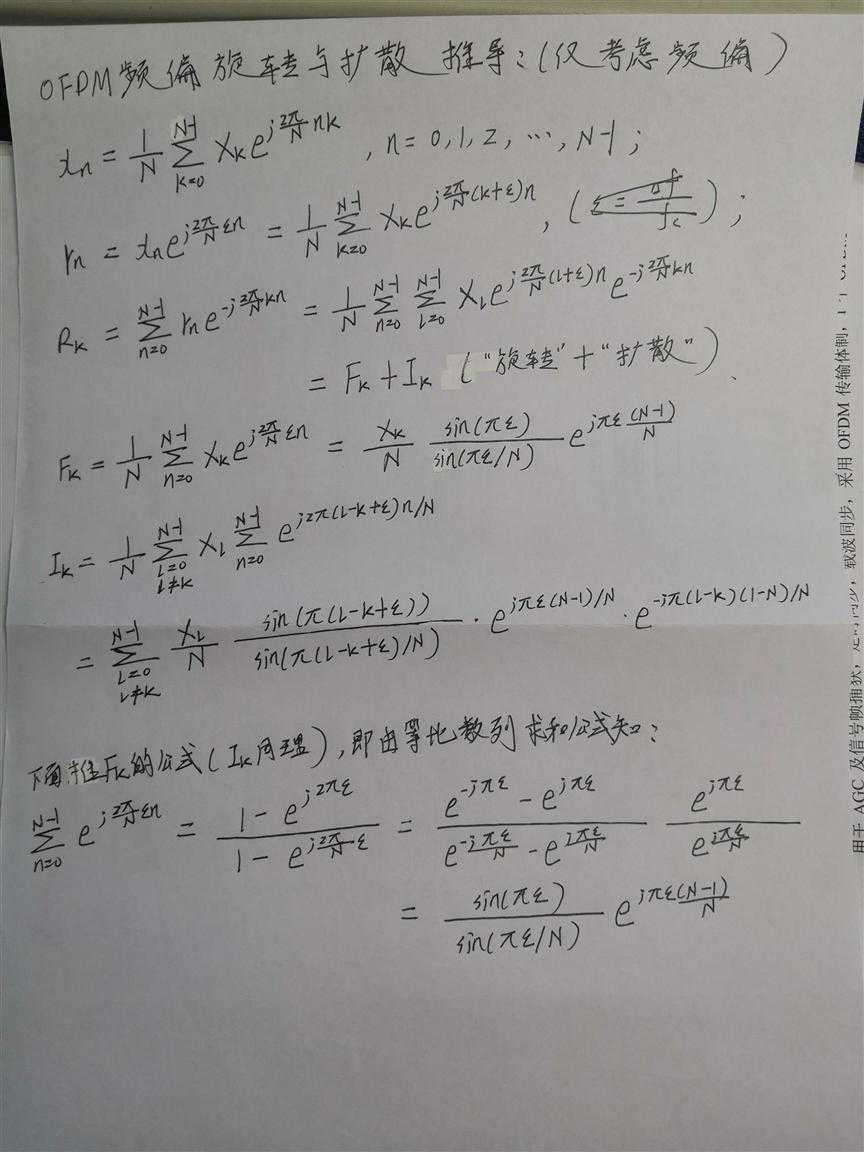 OFDM频偏旋转与扩散 推导:(仅考虑频偏)
x_n = \frac{1}{N} \sum_{k=0}^{N-1} X_k e^{j\frac{2π}{N}nk} , n = 0, 1, 2, ..., N-1 ;
r_n = x_n e^{j\frac{2π}{N}εn} = \frac{1}{N} \sum_{k=0}^{N-1} X_k e^{j\frac{2π}{N}(k+ε)n} , (ε = \frac{Δf}{f_c}) ;
R_k = \sum_{n=0}^{N-1} r_n e^{-j\frac{2π}{N}kn} = \frac{1}{N} \sum_{n=0}^{N-1} \sum_{l=0}^{N-1} X_l e^{j\frac{2π}{N}(l+ε)n} e^{-j\frac{2π}{N}kn}
= F_k + I_k ("旋转"+"扩散").
F_k = \frac{1}{N} \sum_{n=0}^{N-1} X_k e^{j\frac{2π}{N}εn} = \frac{X_k}{N} \frac{sin(πε)}{sin(πε/N)} e^{jπε\frac{(N-1)}{N}}
I_k = \frac{1}{N} \sum_{l=0, l≠k}^{N-1} X_l \sum_{n=0}^{N-1} e^{j2π(l-k+ε)n/N}
= \sum_{l=0, l≠k}^{N-1} \frac{X_l}{N} \frac{sin(π(l-k+ε))}{sin(π(l-k+ε)/N)} · e^{jπε(N-1)/N} · e^{-jπ(l-k)(1-N)/N}
下面推F_k的公式(I_k同理),即由等比数列求和公式知:
\sum_{n=0}^{N-1} e^{j\frac{2π}{N}εn} = \frac{1-e^{j2πε}}{1-e^{j\frac{2π}{N}ε}} = \frac{e^{-jπε}-e^{jπε}}{e^{-j\frac{πε}{N}}-e^{j\frac{πε}{N}}} \frac{e^{jπε}}{e^{j\frac{πε}{N}}}
= \frac{sin(πε)}{sin(πε/N)} e^{jπε\frac{(N-1)}{N}}
用于 AGC 及信号帧捕获,定时同步,载波同步,采用 OFDM 传输体制,